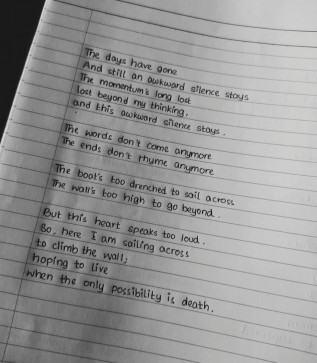 The days have gone
And still an awkward silence stays
The momentum's long lost
lost beyond my thinking,
and this awkward silence stays.
The words don't come anymore
The ends don't rhyme anymore
The boat's too drenched to sail across
The wall's too high to go beyond.
But this heart speaks too loud.
So, here I am sailing across
to climb the wall;
hoping to live
when the only possibility is death.